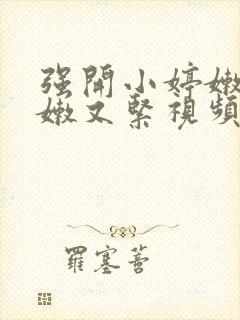 強開小婷嫩
嫩又緊視頻
羅塞菩